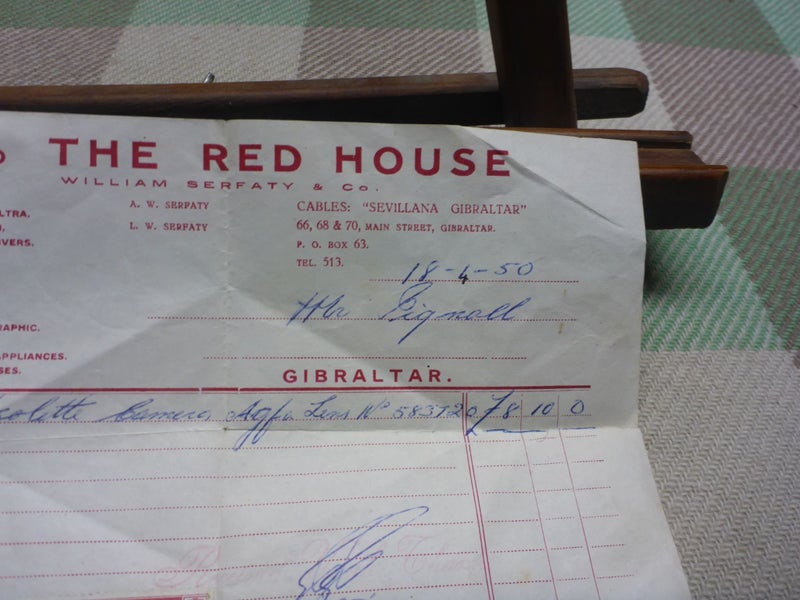 THE RED HOUSE
WILLIAM SERFATY & Co.
LTRA.
VERS.
A. W. SERFATY
L. W. SERFATY
CABLES: "SEVILLANA GIBRALTAR"
66, 68 & 70, MAIN STREET, GIBRALTAR.
P. O. BOX 63.
TEL. 513.
18-4-50
Mr Pignall
RAPHIC.
APPLIANCES.
SES.
GIBRALTAR.
solette Camera Agfa Lens No 583720 78 10 0